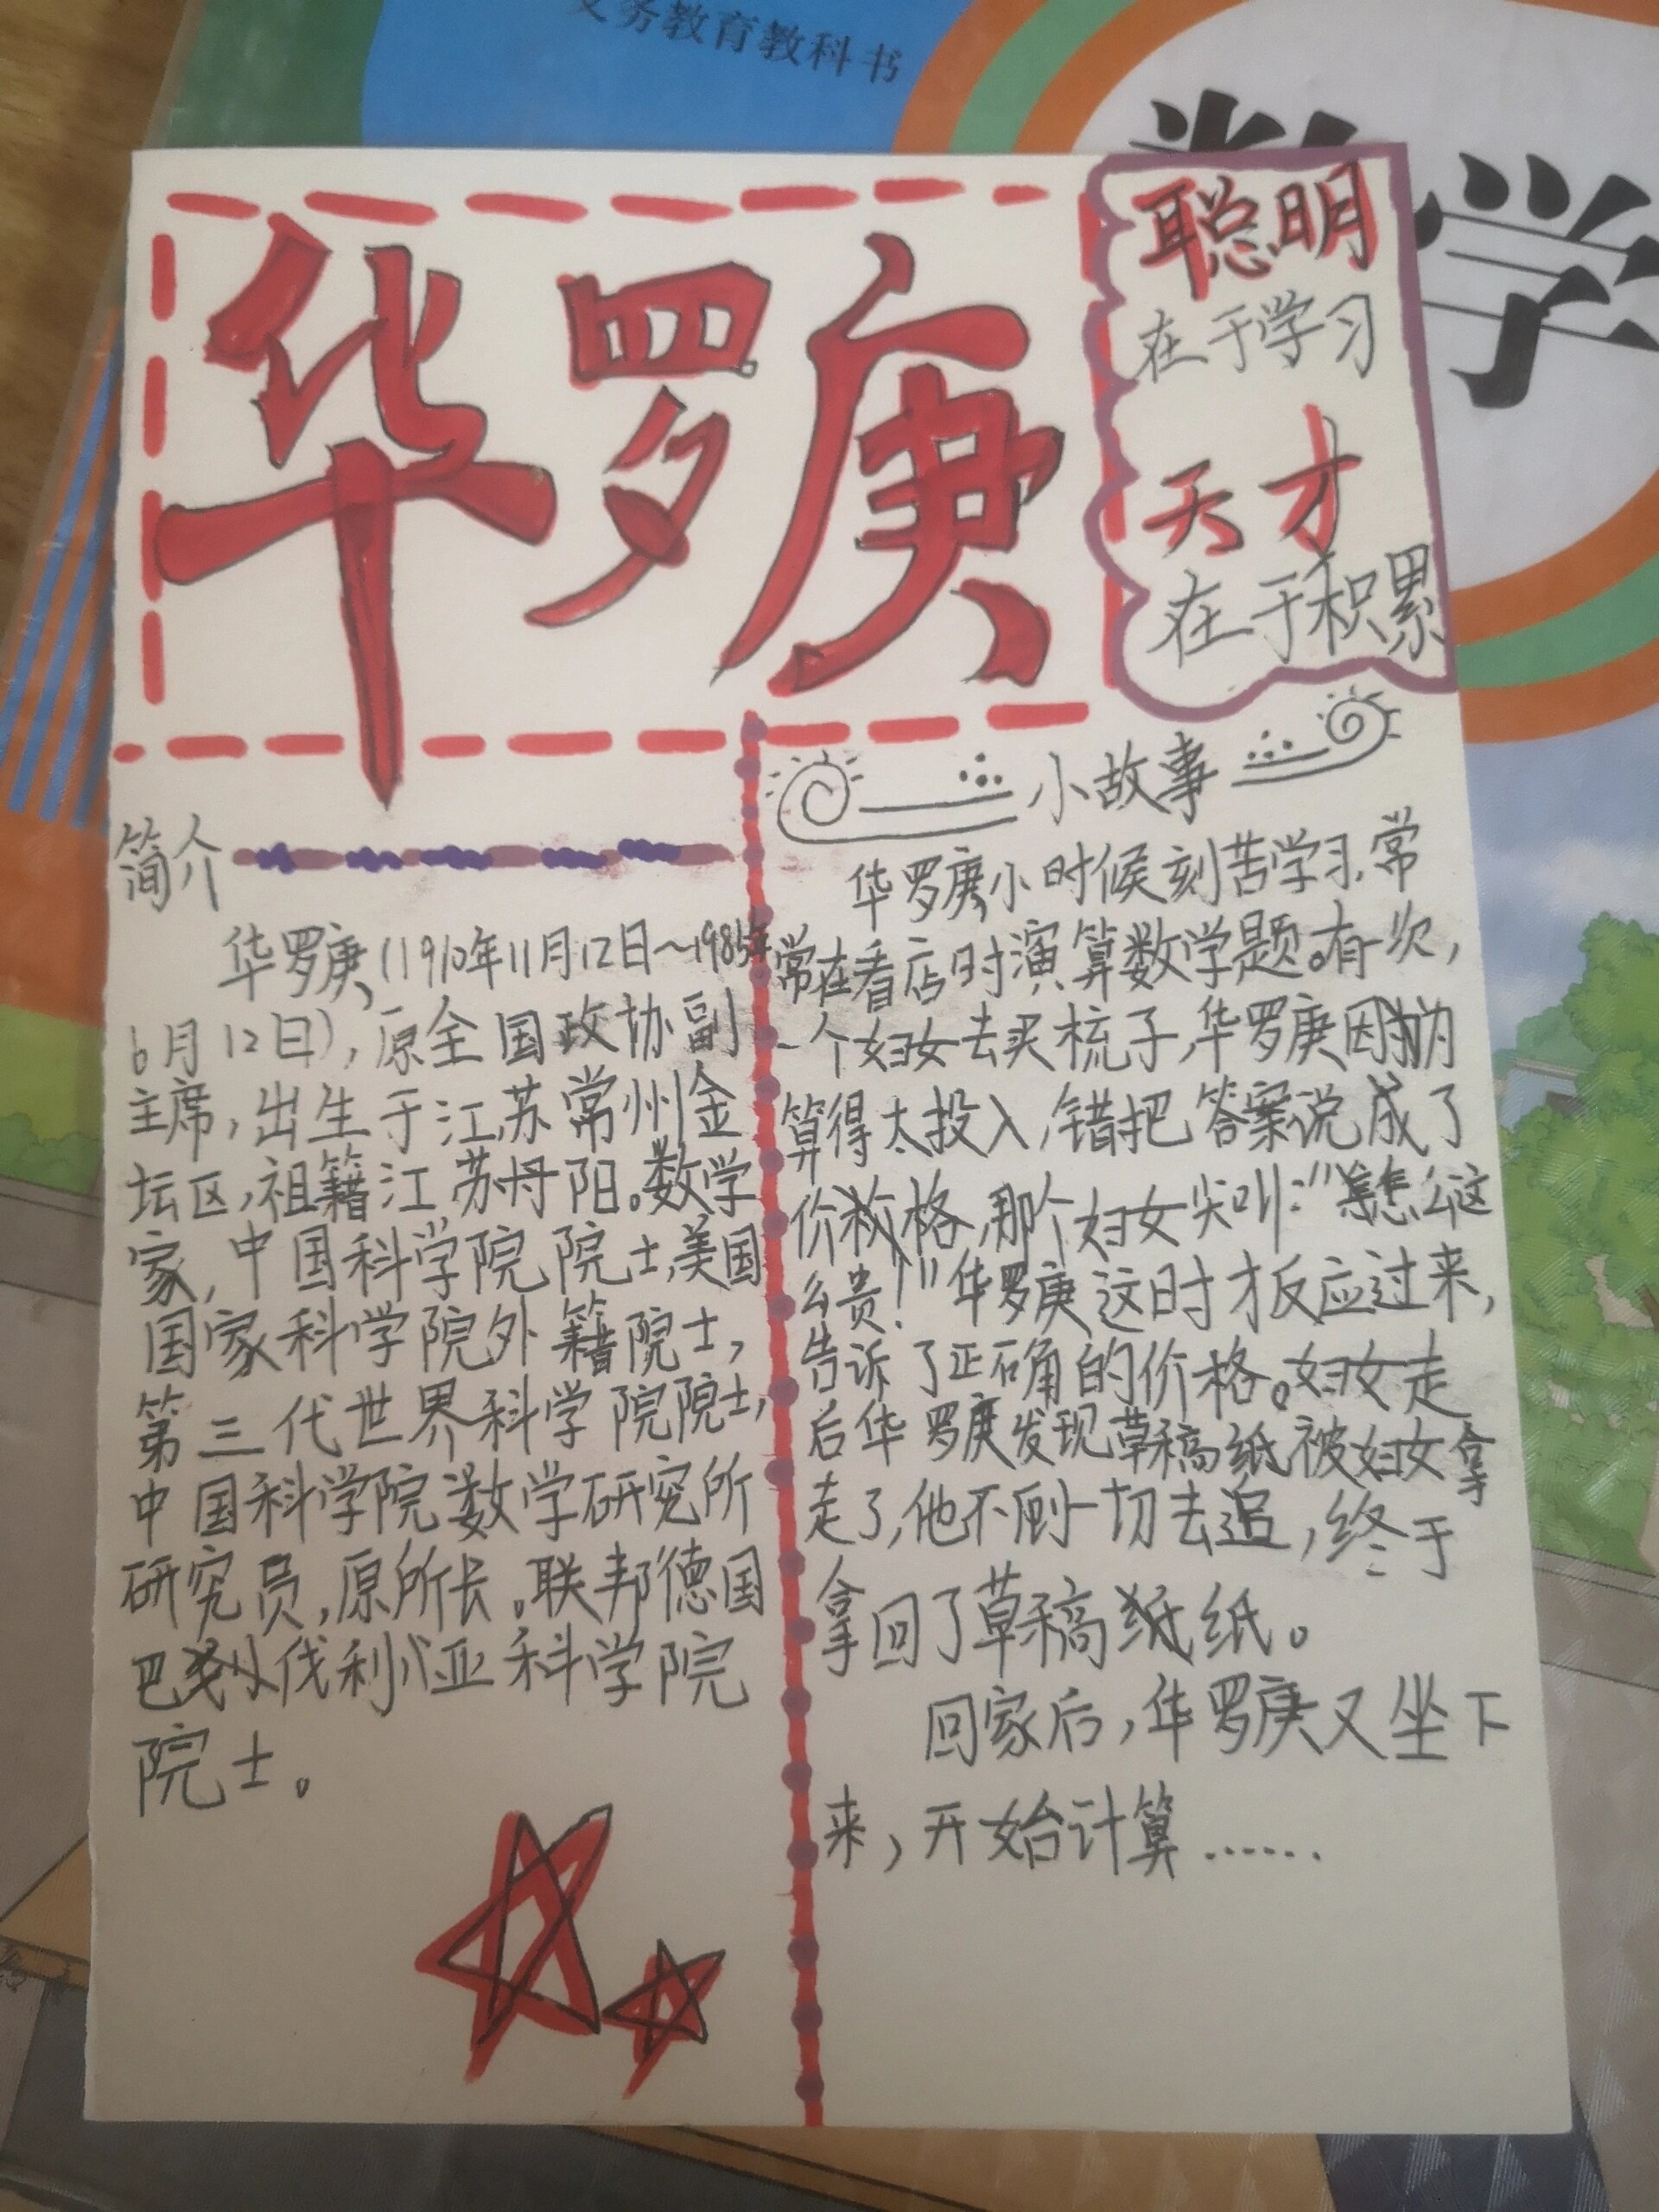 义务教育教科书
数学
华罗庚
聪明
在于学习
天才
在于积累
简介
华罗庚(1910年11月12日~1985年
6月12日),原全国政协副
主席,出生于江苏常州金
坛区,祖籍江苏丹阳。数学
家,中国科学院院士,美国
国家科学院外籍院士,
第三代世界科学院院士,
中国科学院数学研究所
研究员,原所长。联邦德国
巴伐利亚科学院
院士。
小故事
华罗庚小时候刻苦学习,常
常在看店时演算数学题。有一次,
一个妇女去买梳子,华罗庚因为
算得太投入,错把答案说成了
价格,那个妇女尖叫:“怎么这
么贵!”华罗庚这时才反应过来,
告诉了正确的价格。妇女走
后华罗庚发现草稿纸被妇女拿
走了,他不顾一切去追,终于
拿回了草稿纸。
回家后,华罗庚又坐下
来,开始计算……